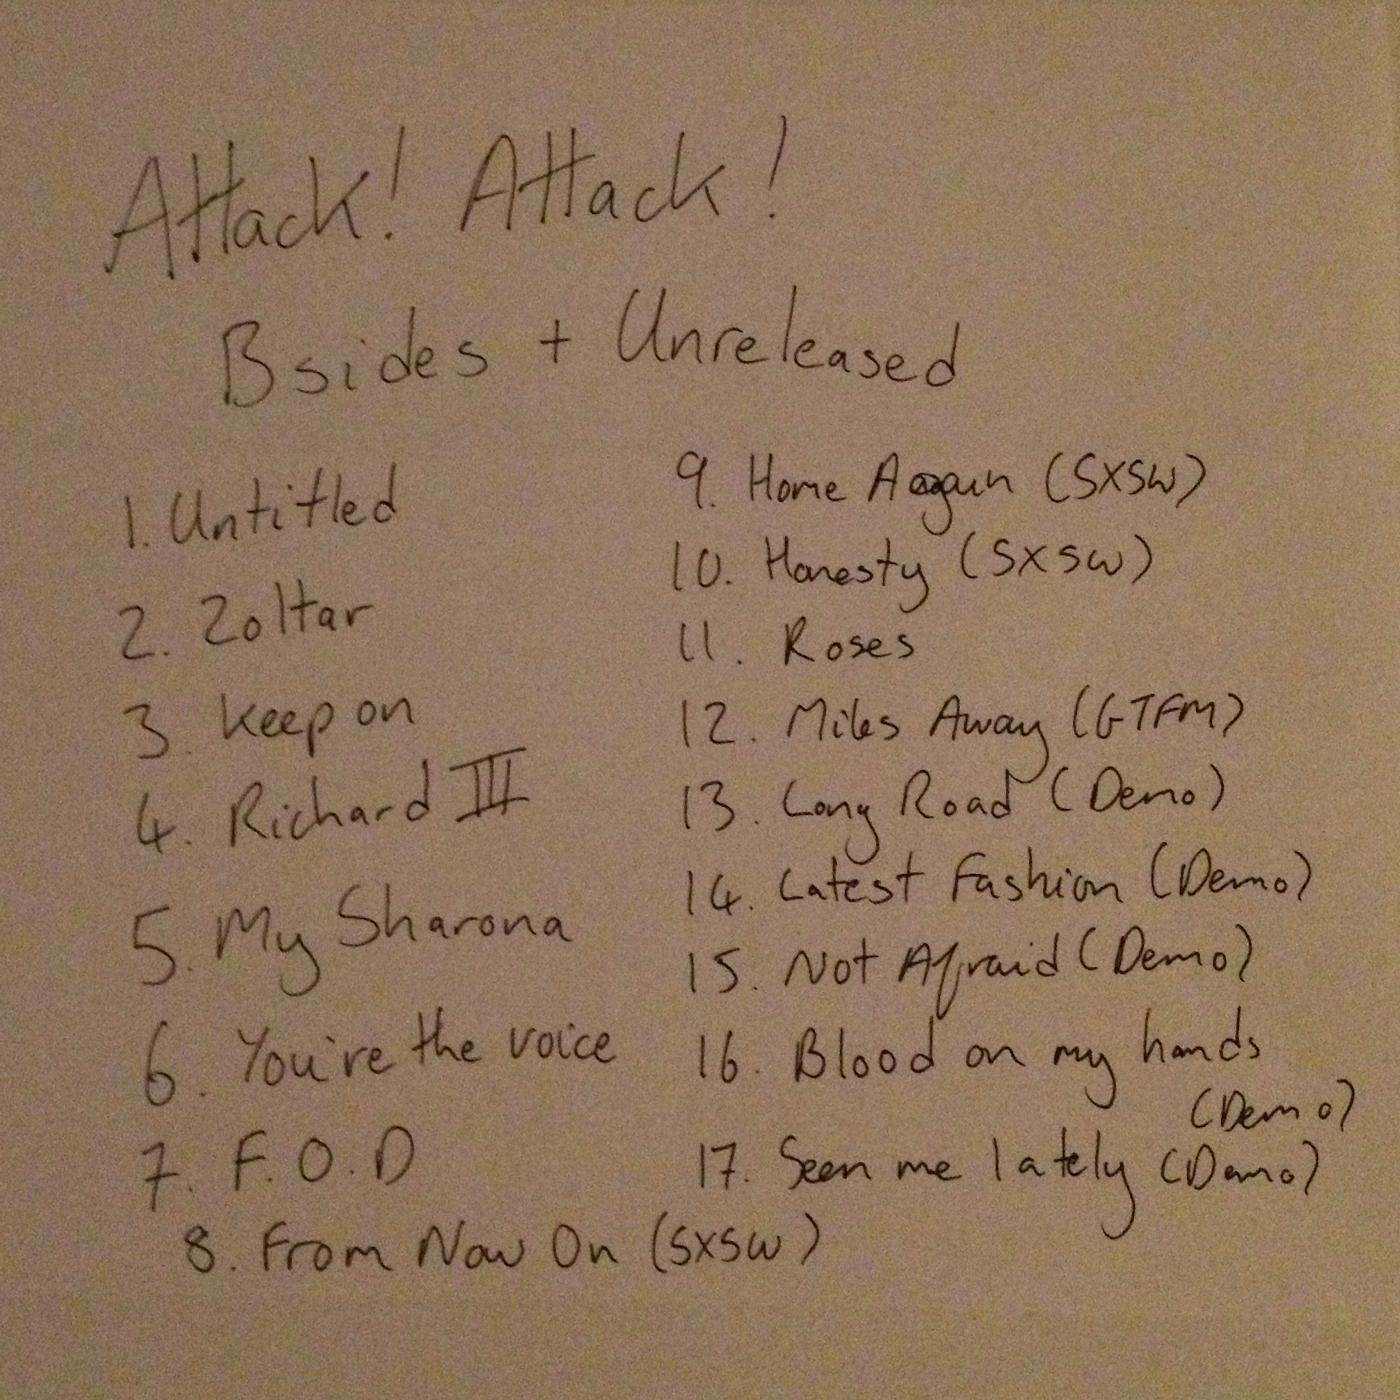 Attack! Attack!
Bsides + Unreleased
1. Untitled
2. Zoltar
3. Keep on
4. Richard III
5. My Sharona
6. You're the voice
7. F.O.D
8. From Now On (SXSW)
9. Home Again (SXSW)
10. Honesty (SXSW)
11. Roses
12. Miles Away (GTFM)
13. Long Road (Demo)
14. Latest Fashion (Demo)
15. Not Afraid (Demo)
16. Blood on my hands
(Demo)
17. Seen me lately (Demo)